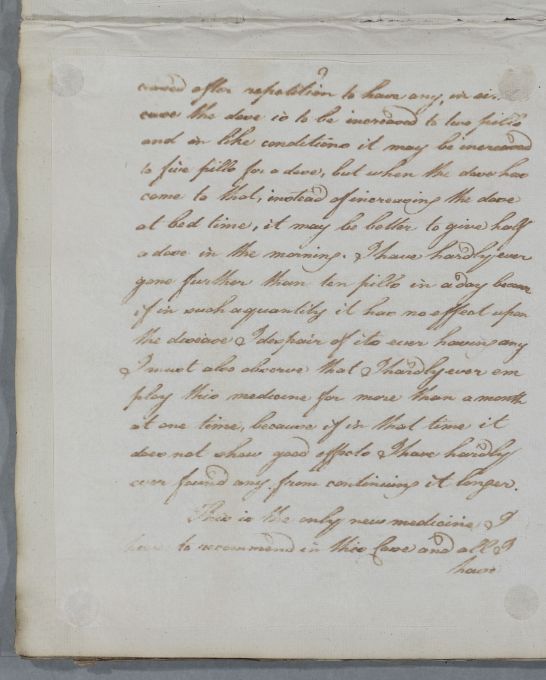 ceased after repetition to have any, in
case the dose is to be increased to two pills
and in like conditions it may be increased
to five pills for a dose, but when the dose has
come to that, instead of increasing the dose
at bed time, it may be better to give half
a dose in the morning. I have hardly ever
gone further than ten pills in a day because
if in such a quantity it has no effect upon
the disease I despair of its ever having any
I must also observe that I hardly ever em
ploy this medicine for more than a month
at one time, because if in that time it
does not show good effects I have hardly
ever found any, from continuing it longer.
This is the only new medicine I
have to recommend in this Case and all I
have